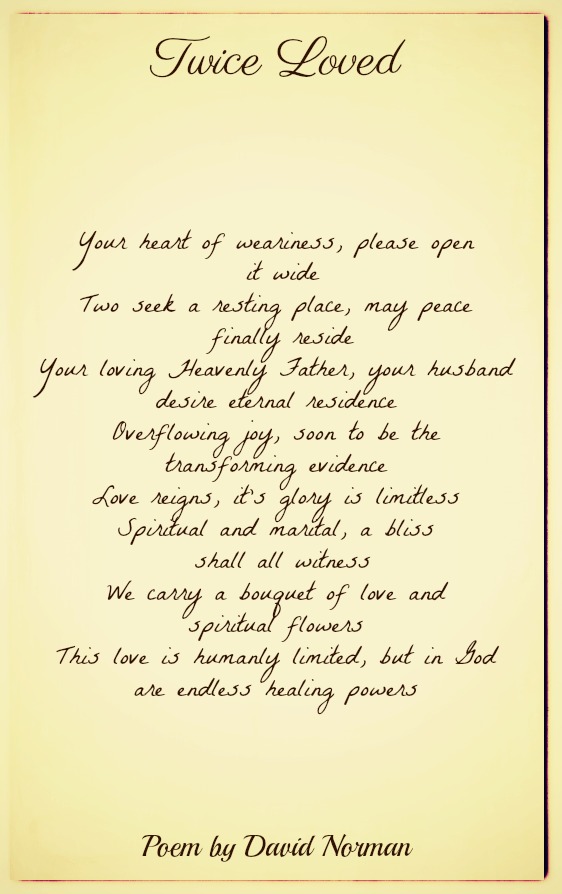 Twice Loved
Your heart of weariness, please open
it wide
Two seek a resting place, may peace
finally reside
Your loving Heavenly Father, your husband
desire eternal residence
Overflowing joy, soon to be the
transforming evidence
Love reigns, it's glory is limitless
Spiritual and marital, a bliss
shall all witness
We carry a bouquet of love and
spiritual flowers
This love is humanly limited, but in God
are endless healing powers
Poem by David Norman